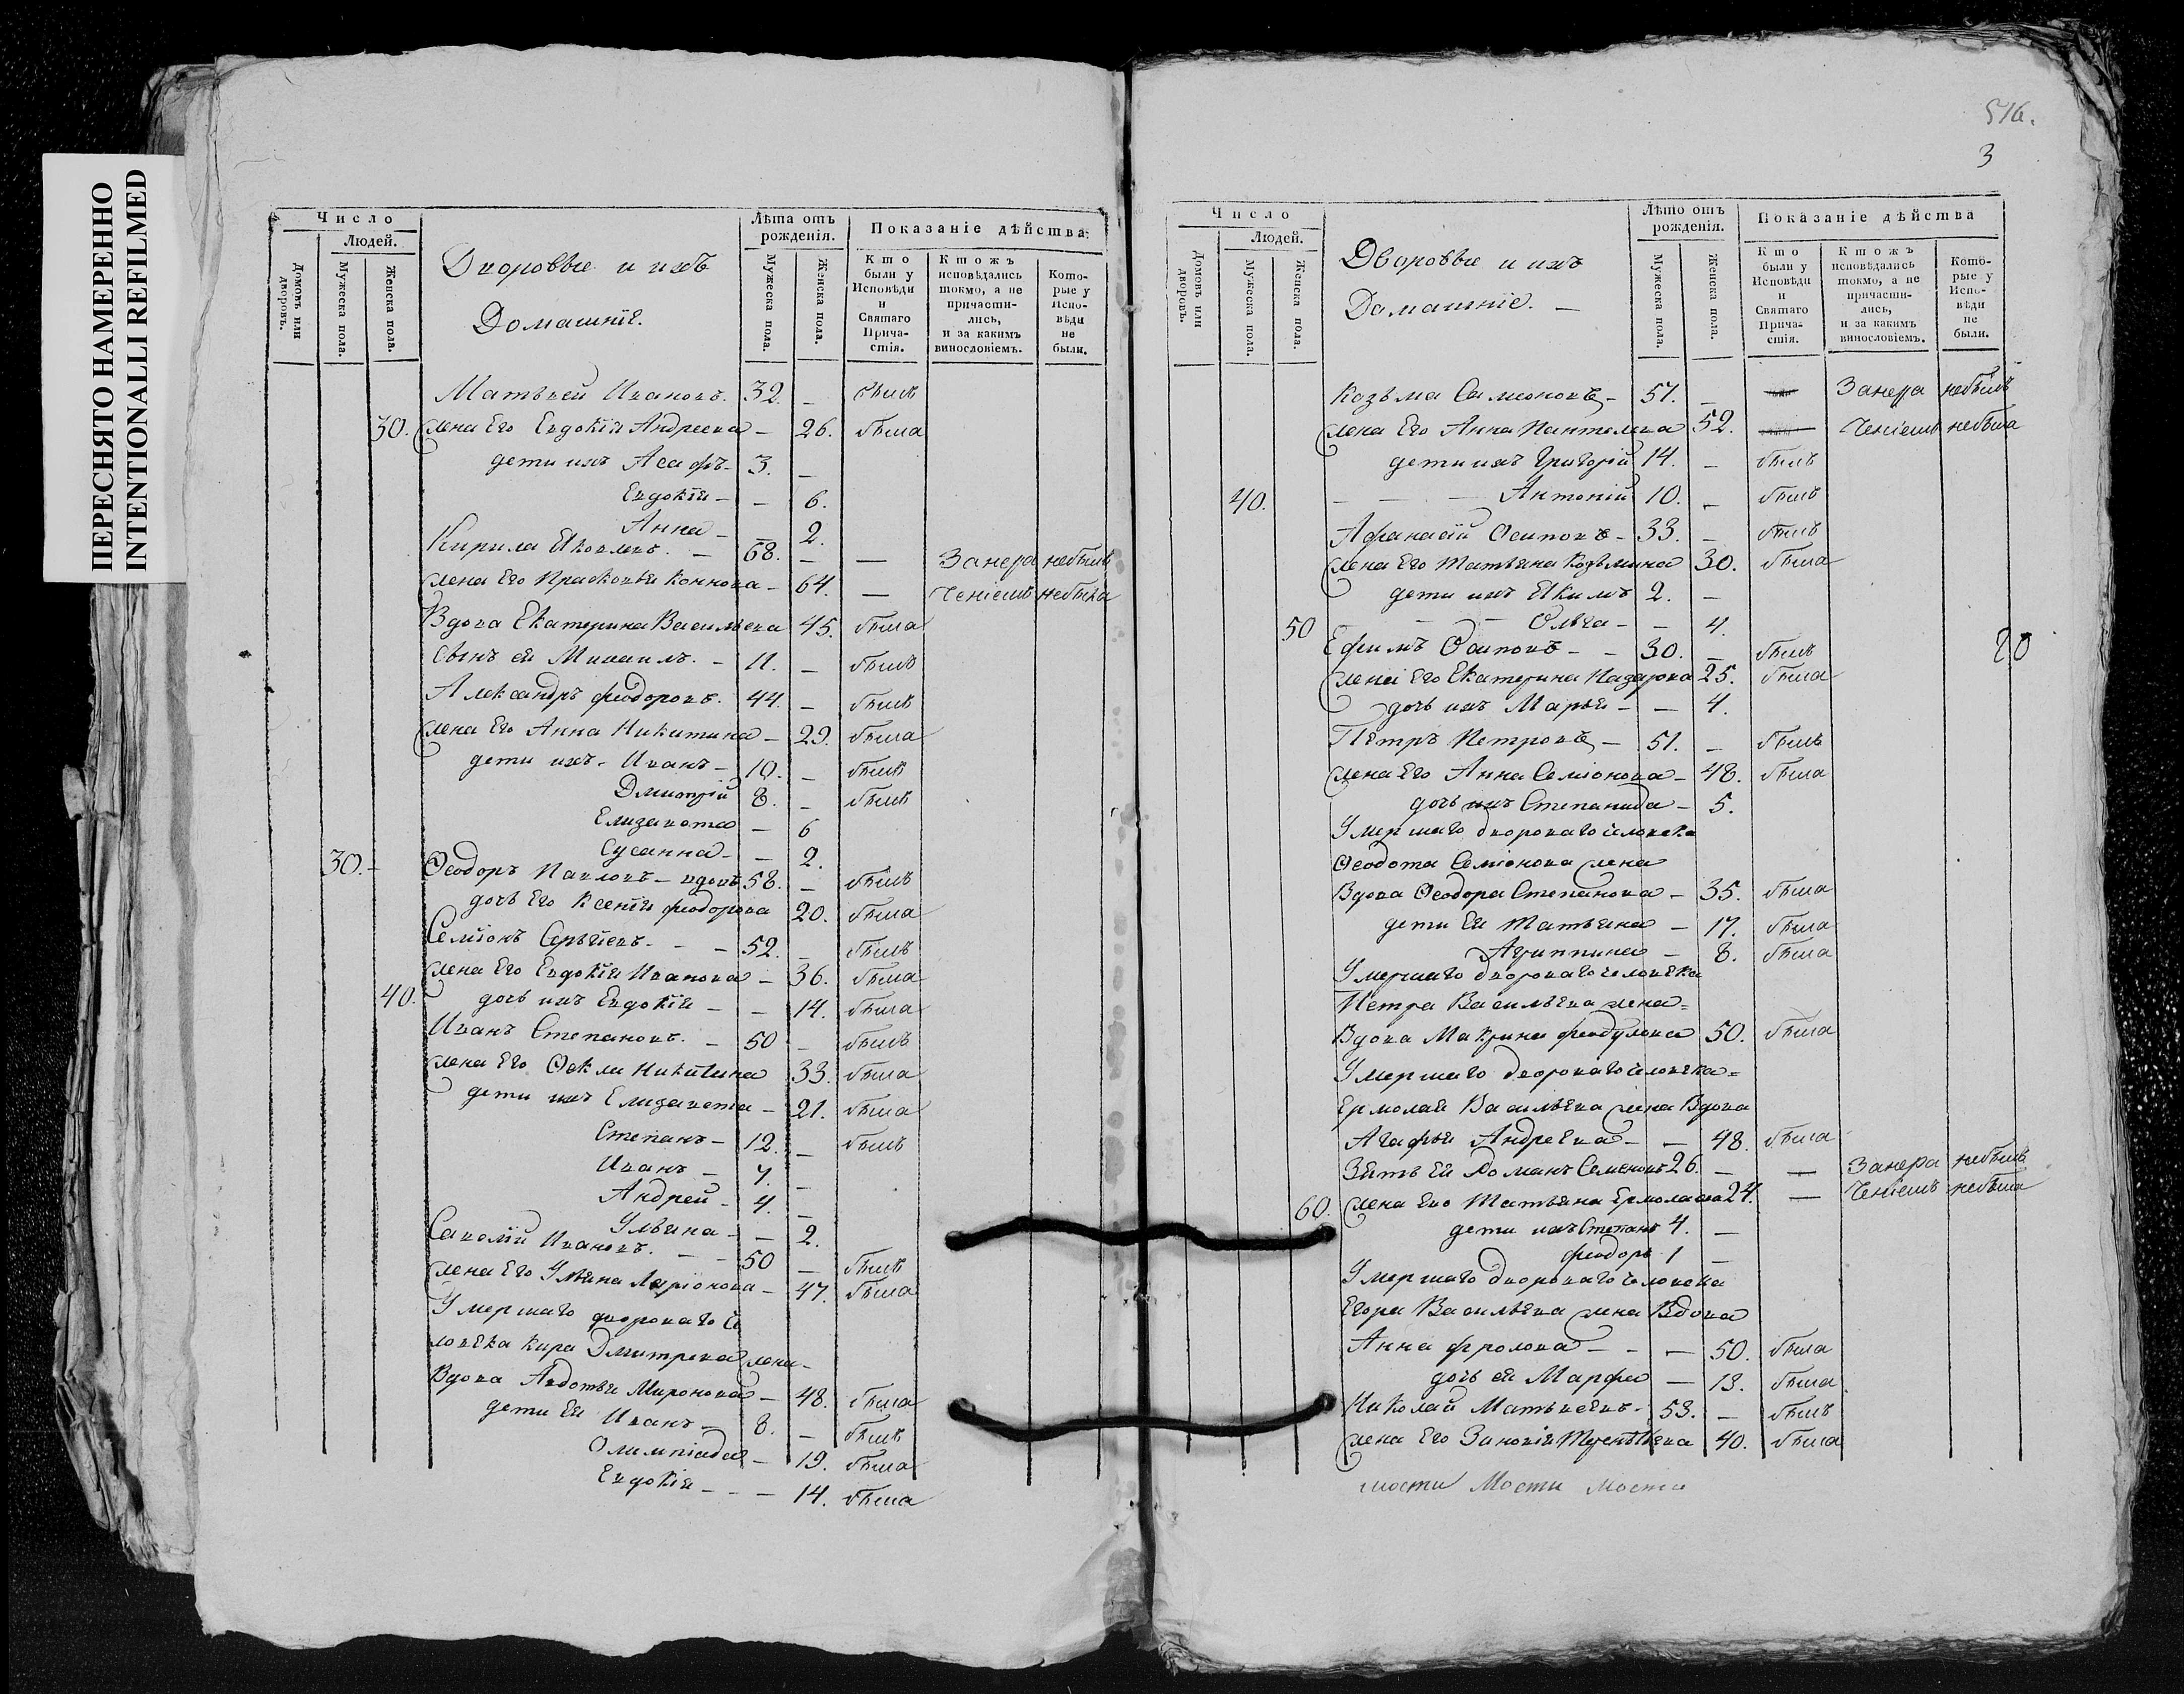 ПЕРЕСНЯТО НАМЕРЕННО
INTENTIONALLI REFILMED
Число
Людей.
Домовъ или дворовъ.
Мужеска пола.
Женска пола.
Дворовые и ихъ
Домашнїе.
Лѣта отъ рожденія.
Мужеска пола.
Женска пола.
Показаніе дѣйства:
Кто были у Исповѣди и Святаго Прича-стія.
Ктожъ исповѣдались токмо, а не причасти-лись, и за какимъ винословіемъ.
Кото-рые у Испо-вѣди не были.
Матьвей Ивановъ. 32. - былъ
30. Жена Его Евдокїя Андреева - 26. была
дети ихъ Асафъ - 3. -
Евдокїя - - 6.
Анна - - 2.
Кирила Яковлевъ. - 68. - - Занера небылъ
Жена Его Прасковья Коннова - 64. - Ченіемъ небыла
Вдова Екатерина Васильева 45. была
Сынъ ей Михаилъ. - 11. - былъ
Александръ Феодоровъ. 44. - былъ
Жена Его Анна Никитина - 29. была
дети ихъ - Иванъ - 10. - былъ
Дмитрїй 8. - былъ
Елизавета - 6
Сусанна - - 2.
30. - Ѳеодоръ Павловъ - вдовъ 58. - былъ
дочь Его Ксенїя Феодорова 20. была
Семїонъ Сергѣевъ. - - 52. - былъ
Жена Его Евдокїя Иванова - 36. была
40. дочь ихъ Евдокїя - - 14. была
Иванъ Степановъ. - 50 - былъ
Жена Его Ѳекла Никитина 33. была
дети ихъ Елизавета - 21. была
Степанъ - 12. - былъ
Иванъ - 7. -
Андрей - 4. -
Ульяна - - 2.
Савелїй Ивановъ. - - 50 - былъ
Жена Его Ульяна Ларіонова - 47. была
Умершаго двороваго че
ловека Кира Дмитрева жена -
Вдова Авдотья Миронова - 48. была
дети Ей Иванъ - 8. - былъ
Олимпіада - 19. была
Евдокїя - - - 14. была
516.
3
Число
Людей.
Домовъ или дворовъ.
Мужеска пола.
Женска пола.
Дворовые и ихъ
Домашнїе. -
Лѣто отъ рожденія.
Мужеска пола.
Женска пола.
Показаніе дѣйства
Кто были у Исповѣди и Святаго Прича-стія.
Ктожъ исповѣдались токмо, а не причасти-лись, и за какимъ винословіемъ.
Кото-рые у Испо-вѣди не были.
Козьма Симионовъ - 57. - Занера небылъ
Жена Его Анна Пантелева 52. Ченіемъ небыла
дети ихъ Григорїй 14. - былъ
40. - - - Антонїй 10. - былъ
Афанасїй Осиповъ - 33. - былъ
Жена Его Татьяна Козьмина 30. была
дети ихъ Якимъ 2. -
50 - - - Ольга - - 4.
Ефимъ Осиповъ - - 30. - былъ
20
Жена Его Екатерина Назарова 25. была
дочь ихъ Марья - - 4.
Пётръ Петровъ - 51. - былъ
Жена Его Анна Семіонова - 48. была
дочь ихъ Степанида - 5.
Умершаго двороваго человека
Ѳеодота Семіонова жена
Вдова Ѳеодора Степанова - 35. была
дети Ей Татьяна - 17. была
Агрипина - 8. была
Умершаго двороваго человека
Петра Васильева жена =
Вдова Макрина Феодулова 50. была
Умершаго двороваго человека =
Ермолая Васильева жена Вдова
Агафья Андреева - - 48. была
Зять Ей Романъ Семеновъ 26. - - Занера небылъ
60. Жена Его Татьяна Ермолаева 24. - Ченіемъ небыла
дети ихъ Степанъ 4. -
Феодоръ 1 -
Умершаго двороваго человека
Егора Васильева жена Вдова
Анна Фролова - - - 50. была
дочь ей Марфа - 13. была
Николай Матьвеевъ - 53. - былъ
Жена Его Зиновія 40. была
мости Мости Мости